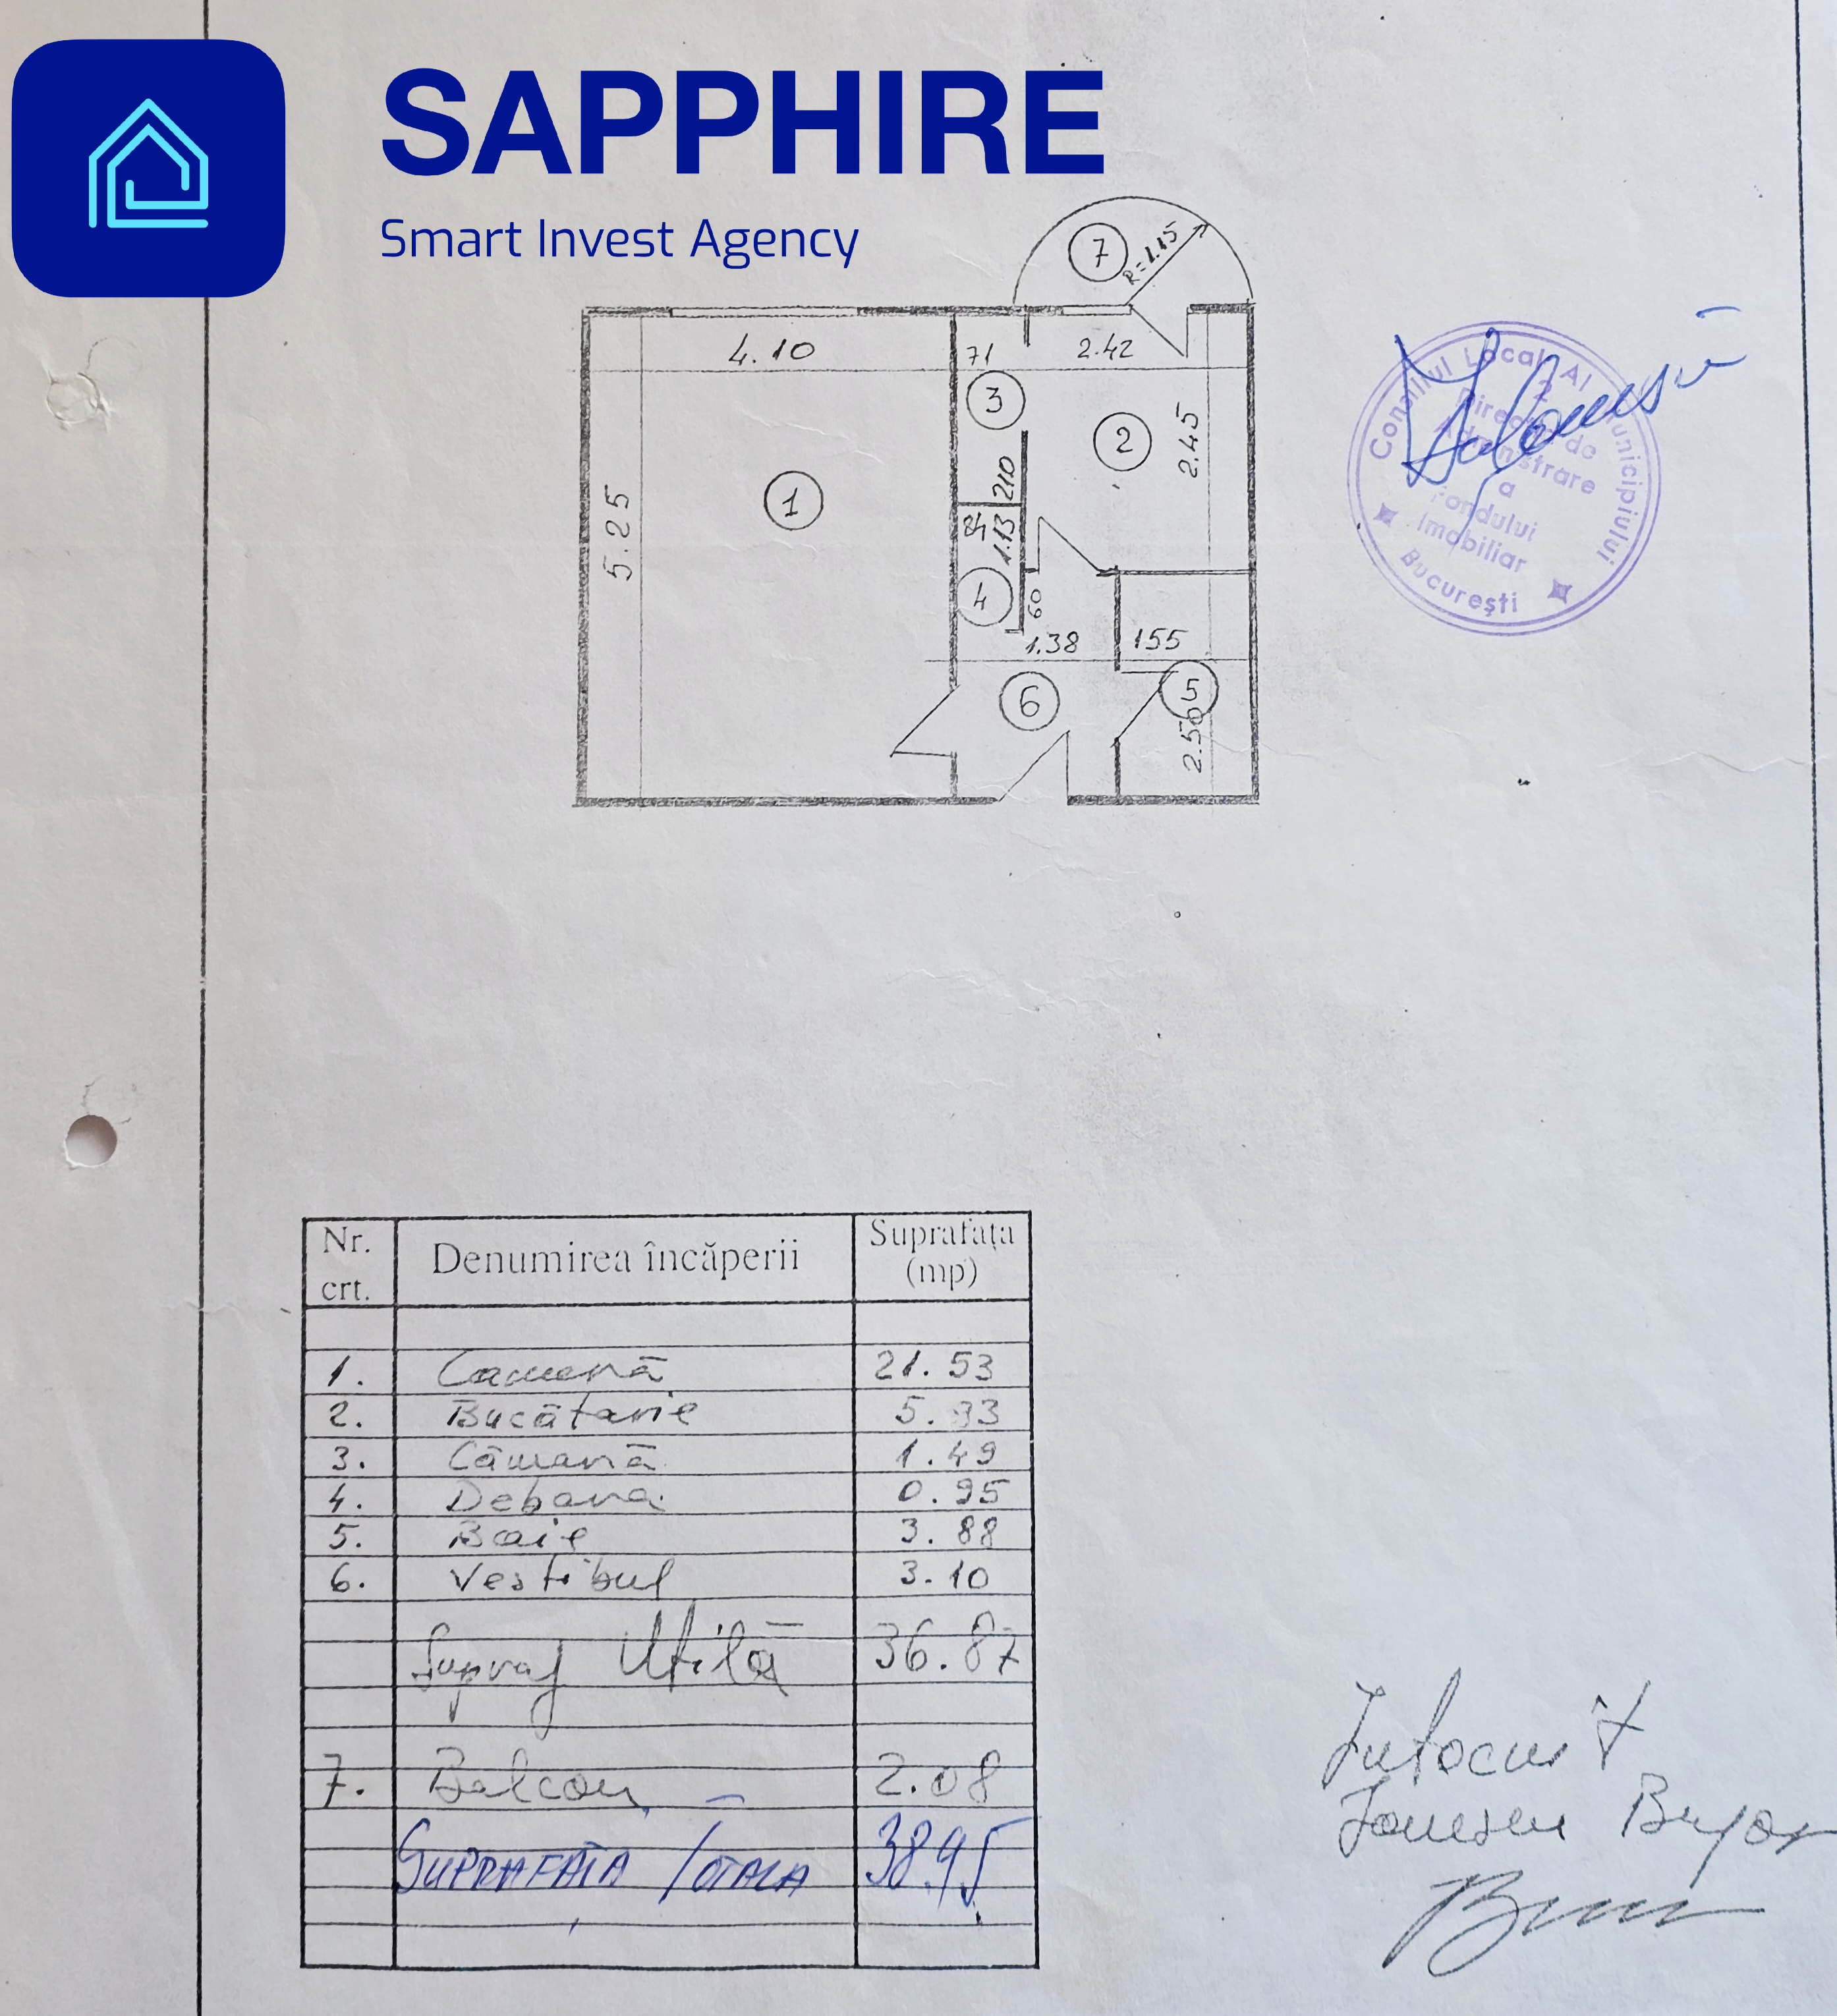 SAPPHIRE
Smart Invest Agency
7
R=1.15
4.10
71
2.42
3
2
2.45
1
5.25
210
84
1.13
4
60
1.38
155
6
5
2.50
Consiliul Local Al Municipiului
București
2
Direcția de
Administrare
a
Fondului
Imobiliar
Nr. crt. Denumirea încăperii Suprafața (mp)
1. Cameră 21.53
2. Bucătarie 5.93
3. Cămară 1.49
4. Debara 0.95
5. Baie 3.88
6. Vestibul 3.10
Supraf Utilă 36.87
7. Balcon 2.08
SUPRAFATA TOTALA 38.95
Intocmit
Ionescu Bujor